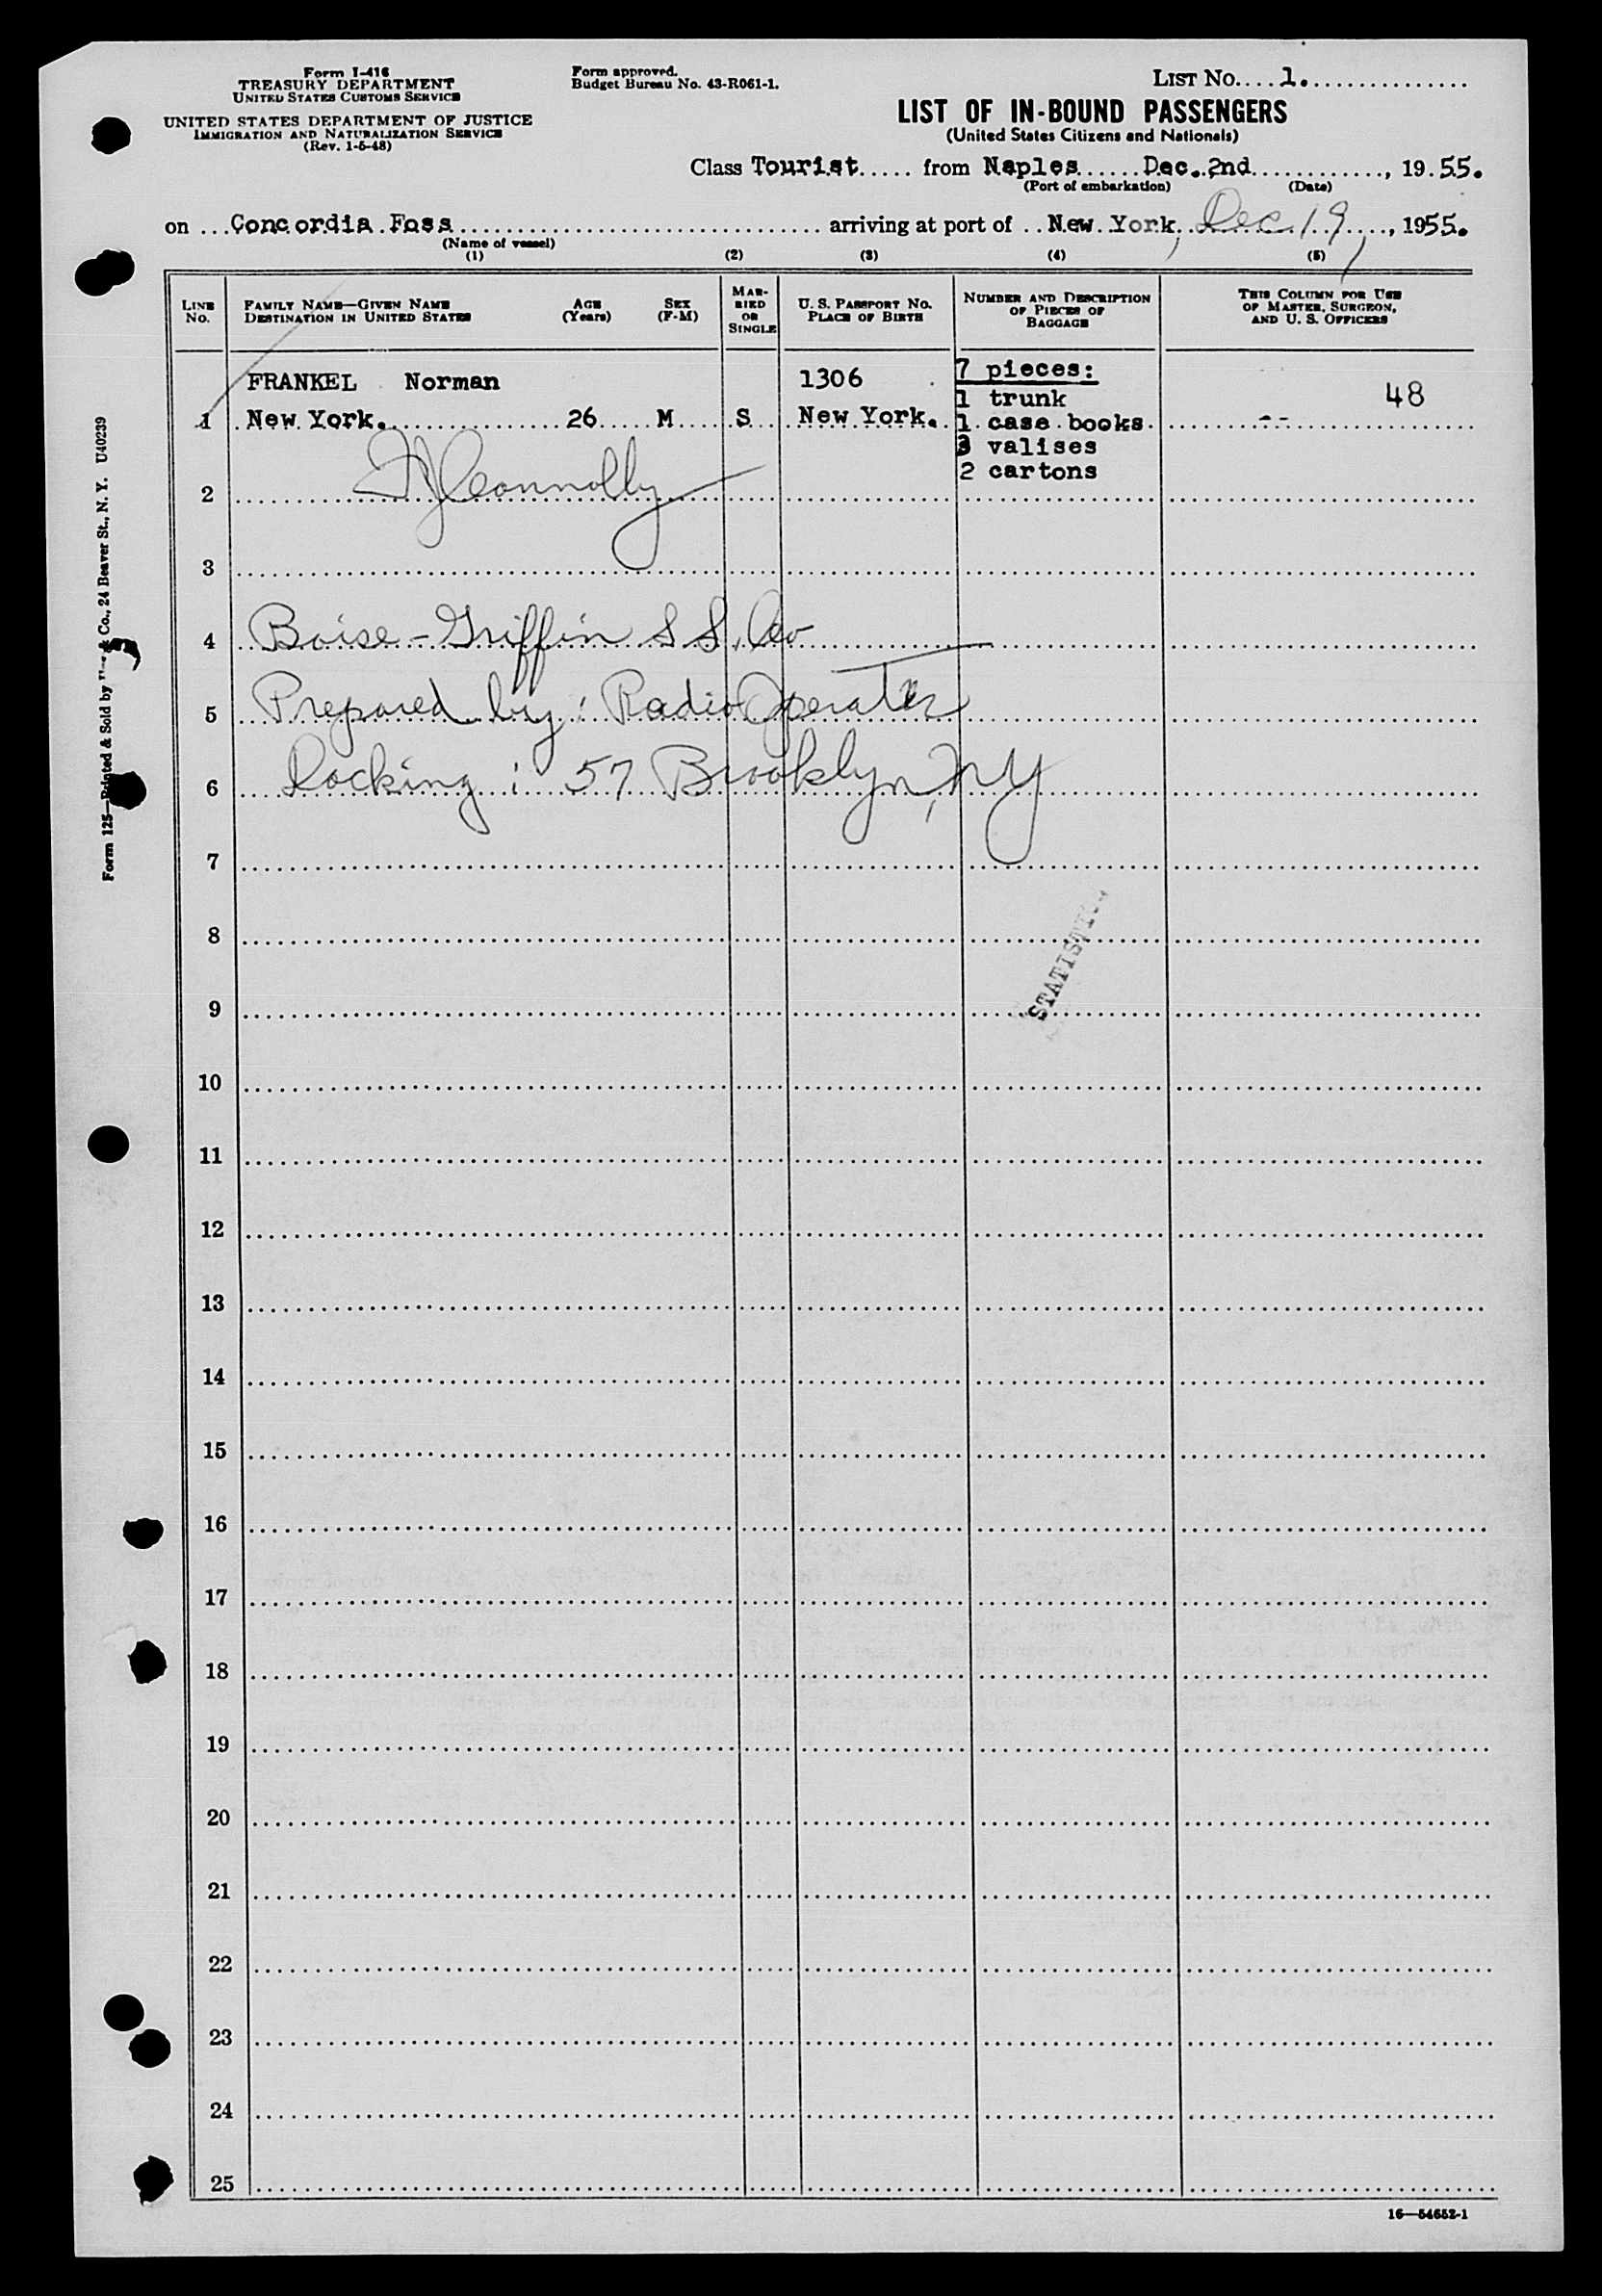 Form I-416
TREASURY DEPARTMENT
UNITED STATES CUSTOMS SERVICE
UNITED STATES DEPARTMENT OF JUSTICE
IMMIGRATION AND NATURALIZATION SERVICE
(Rev. 1-5-48)
Form approved.
Budget Bureau No. 43-R061-1.
LIST NO. 1.
LIST OF IN-BOUND PASSENGERS
(United States Citizens and Nationals)
Class Tourist from Naples Dec. 2nd, 1955.
(Port of embarkation) (Date)
on Concordia Foss arriving at port of New York, Dec. 19, 1955.
(Name of vessel)
(1) (2) (3) (4) (5)
LINE No. FAMILY NAME—GIVEN NAME DESTINATION IN UNITED STATES AGE (Years) SEX (F-M) MARRIED OR SINGLE U. S. PASSPORT NO. PLACE OF BIRTH NUMBER AND DESCRIPTION OF PIECES OF BAGGAGE THIS COLUMN FOR USE OF MASTER, SURGEON, AND U. S. OFFICERS
7 pieces:
FRANKEL Norman 1306 1 trunk 48
1 New York. 26 M S New York. 1 case books --
3 valises
2 cartons
2 Connolly
3
4 Boise-Griffin S S. Co
5 Prepared by: Radio Operator
6 Docking: 57 Brooklyn, NY
7
8
STATIST
9
10
11
12
13
14
15
16
17
18
19
20
21
22
23
24
25
16—54652-1
Form 125—Printed & Sold by & Co., 24 Beaver St., N. Y. U40239